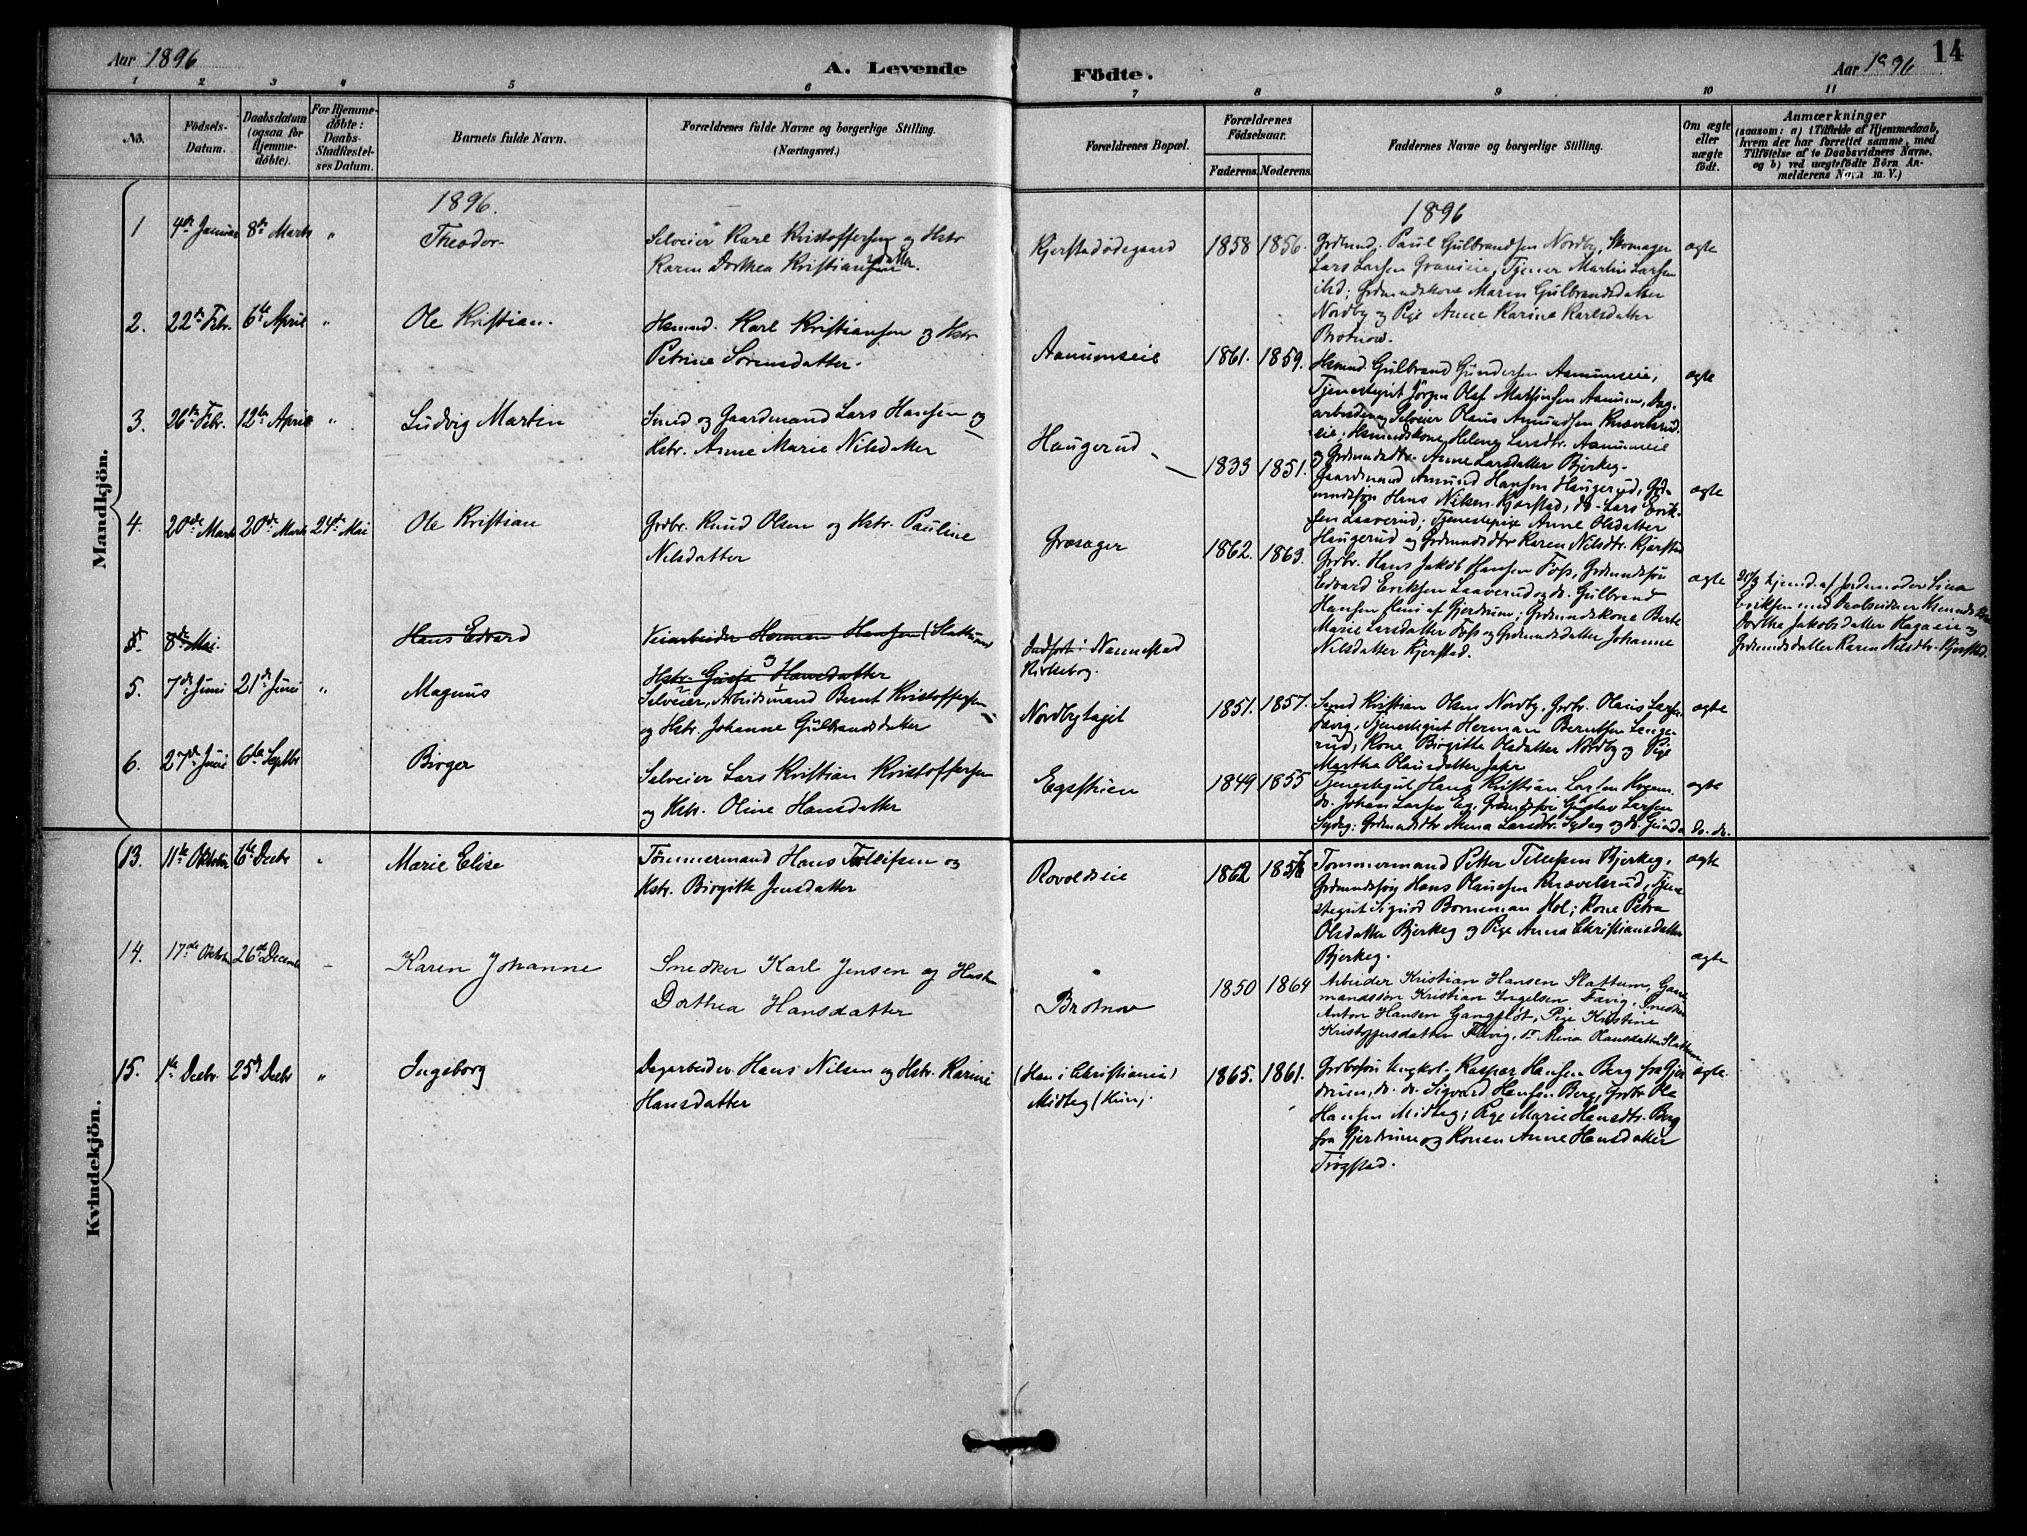 Aar 1896
A. Levende
Födte.
Aar 1896
14
1 2 3 4 5 6 7 8 9 10 11
No.
Födsels-Datum.
Daabsdatum (ogsaa for Hjemmedøbte).
For Hjemmedøbte: Daabs-Stadfæstelses Datum.
Barnets fulde Navn.
Forældrenes fulde Navne og borgerlige Stilling.
(Næringsvei.)
Forældrenes Bopæl.
Forældrenes Födselsaar.
Faderens. Moderens.
Faddernes Navne og borgerlige Stilling.
Om ægte eller uægte födt.
Anmærkninger
(saasom: a) i Tilfælde af Hjemmedaab,
hvem der har forrettet samme, med
Tilföielse af to Daabsvidners Navne,
og b) ved uægtefödte Börn An-
melderens Navn m.V.)
Mandkjön.
1896.
1896
1 4de Januar 8de Marts " Theodor.
Selveier Karl Kristoffersen og Hstr
Karen Dorthea Kristiansdatter.
Kjerstadødegaard 1858 1856.
Grdmnd. Paul Gulbrandsen Nordby, Skomager
Lars Larsen Graneie, Tjener Martin Larsen
ibd; Grdmndskone Maren Gulbrandsdatter
Nordby og Pige Anne Karine Karlsdatter
Brotnov.
ægte
2. 22de Febr. 6te April " Ole Kristian.
Hsmnd. Karl Kristiansen og Hstr
Petrine Sorensdatter.
Aamumseie 1861. 1859.
Hsmnd. Gulbrand Gundersen Aamumseie,
Tjenestegut Jörgen Olaf Mathisen Aamum, Dag-
arbeider og Selveier Olaus Amundsen Knævelsrud-
eie; Hsmndskone Helene Larsdtr. Aamumseie
og Grdmndsdtr. Anne Larsdatter Bjerkeg.
ægte
3. 26de Febr. 12te April " Ludvig Martin
Smed og Gaardmand Lars Hansen og
Hstr. Anne Marie Nilsdatter
Haugerud 1833 1851.
Gaardmand Amund Hansen Haugerud, Grd-
mndssøn Hans Nilsen Kjerstad, do. Lars Erik-
sen Laaverud; Tjenestepige Anne Olsdatter
Haugerud og Grdmndsdtr Karen Nilsdtr. Kjerstad
ægte
4. 20de Marts 20de Marts 24de Mai Ole Kristian
Grdbr. Knud Olsen og Hstr. Pauline
Nilsdatter
Græsager 1862. 1863.
Grdbr. Hans Jakob Hansen Foss, Grdmndssøn
Edvard Eriksen Laaverud og do. Gulbrand
Hansen af Gjerdrum; Grdmndskone Berte
Marie Larsdatter Foss og Grdmndsdatter Johanne
Nilsdatter Kjerstad.
ægte
20/3 hjemd. af Jordemoder Lina
Eriksen med Daabsvidner
Dorthea Jakobsdatter Hagaeie og
Grdmndsdatter Karen Nilsdtr. Kjerstad.
5. 8de Mai. Hans Edvard
Veiarbeider Herman Hansen (Slattum)
og
Hstr. Hansdatter
Indført i Nannestad
Kirkebog.
5. 7de Juni 21de Juni " Magnus
Selveier, Arbeidsmand Bernt Kristoffersen
og Hstr. Johanne Gulbrandsdatter
Nordbytajet 1851. 1857.
Smed Kristian Olsen Nordby, Grdbr. Olaus Larsen
Favig, Tjenestegut Herman Berntsen
rud, Kone Birgitte Olsdatter Nordby og Pige
Martha Olausdatter Jahr
ægte
6. 27de Juni 6te Septbr Birger
Selveier Lars Kristian Kristoffersen
og Hstr. Oline Hansdatter
Egsstuen 1849 1855
Tjenestegut Hans Kristian Larsen
do. Johan Larsen Eg, Grdmndssøn Gustav Larsen
Sydeg; Grdmndsdtr Anna Larsdtr. Sydeg og do. Gunda do. do.
ægte
Kvindekjön.
13. 11te Oktober 6te Decbr " Marie Elise
Tömmermand Hans Tollefsen og
Hstr. Birgitte Jensdatter
Rovoldseie 1862
Tommermand Petter Tollefsen Bjerkeg,
Grdmndssøn Hans Olausen Knævelsrud, Tjene-
stegut Sigurd Borneman Hol; Kone Petra
Olsdatter Bjerkeg og Pige Anna Christiansdatter
Bjerkeg.
ægte
14. 17de Oktober 26de Decemb Karen Johanne
Snedker Karl Jensen og Hustr
Dorthea Hansdatter
Brotnov 1850 1864
Arbeider Kristian Hansen Slattum, Gaard-
mandssön Kristian Ingelsen Favig, Snedker
Anton Hansen Gangflöt, Pige Kristine
Kristoffersdatter Favig, do Mina Hansdatter Slattum
ægte
15. 1ste Decbr. 25de Decbr " Ingeborg
Dagarbeider Hans Nilsen og Hstr. Karine
Hansdatter
(Han i Christiania)
Midteg (Hun).
1865. 1861.
Grdbrsøn Ungkarl Kaspar Hansen Berg fra Gjer-
drum, do. do. Sigvard Hansen Berg, Grdbr Ole
Hansen Midteg; Pige Marie Hansdtr. Berg
fra Gjerdrum og Konen Anne Hansdatter
Trögstad.
ægte